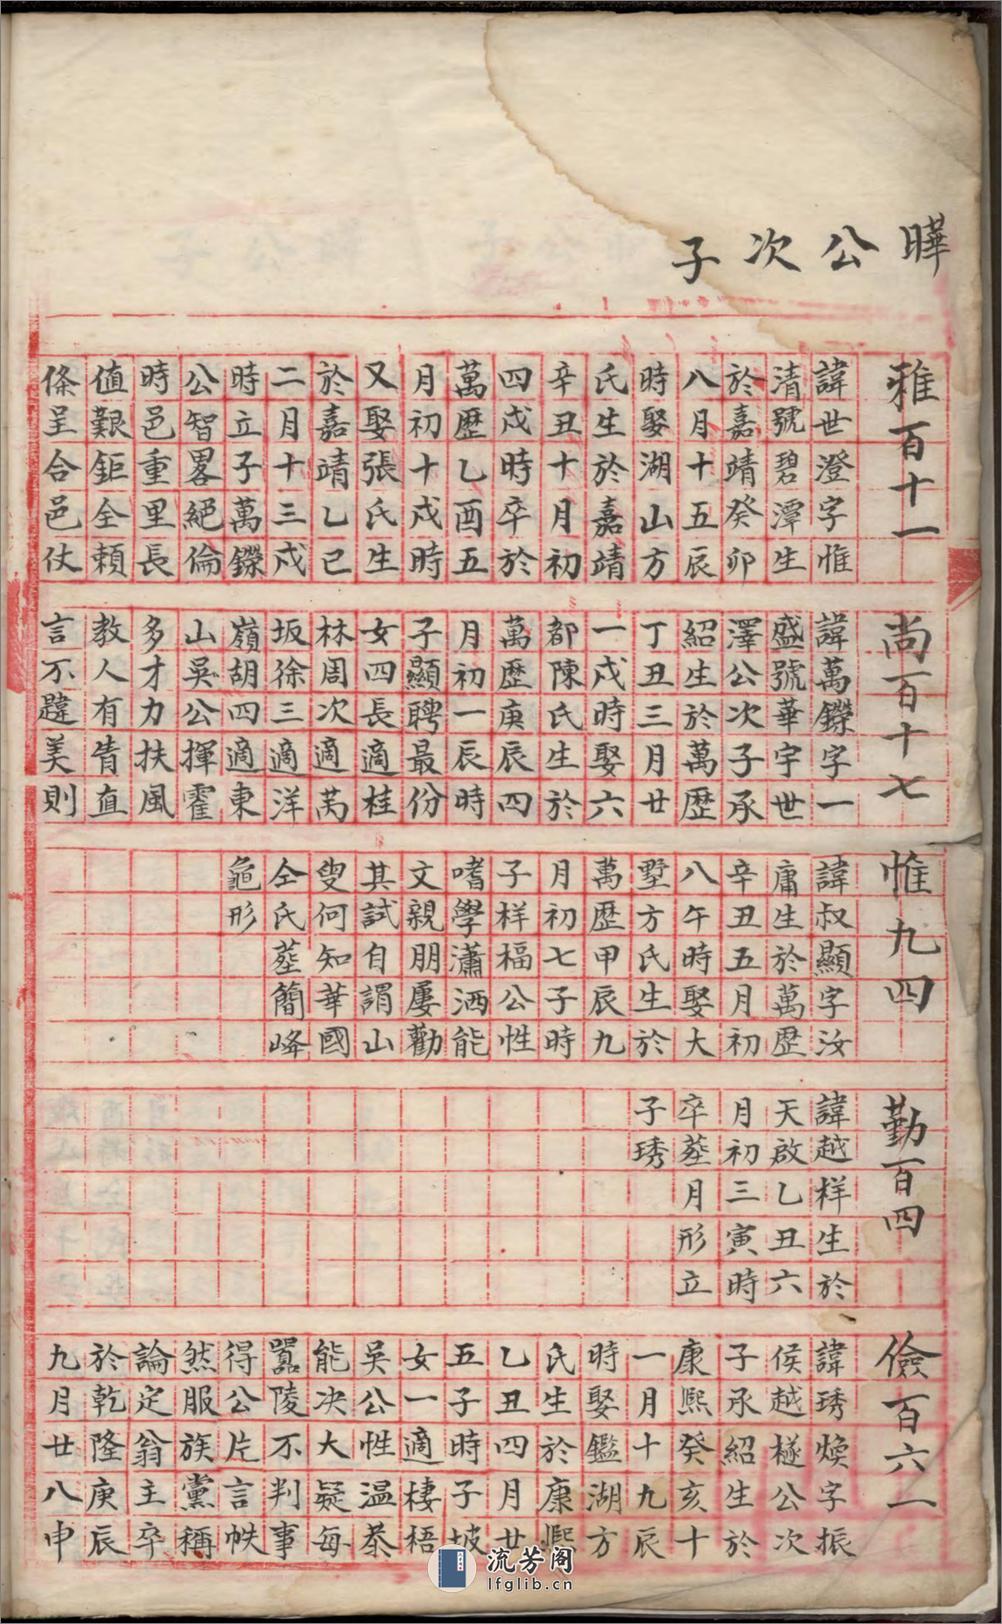 曄公次子
雅百十一
諱世澄字惟
清號碧潭生
於嘉靖癸卯
八月十五辰
時娶湖山方
氏生於嘉靖
辛丑十月初
四戌時卒於
萬歷乙酉五
月初十戌時
又娶張氏生
於嘉靖乙巳
二月十三戌
時立子萬鑅
公智畧絕倫
時邑重里長
值艱鉅全賴
條呈合邑仗
尚百十七
諱萬鑅字一
盛號華宇世
澤公次子承
紹生於萬歷
丁丑三月廿
一戌時娶六
都陳氏生於
萬歷庚辰四
月初一辰時
子顯聘最份
女四長適桂
林周次適萬
坂徐三適洋
嶺胡四適東
山吳公揮霍
多才力扶風
教人有眚直
言不韙美則
惟九四
諱叔顯字汝
庸生於萬歷
辛丑五月初
八午時娶大
墅方氏生於
萬歷甲辰九
月初七子時
子样福公性
嗜學瀟洒能
文親朋屢勸
其試自謂山
叟何知華國
仝氏塟簡峰
龜形
勤百四
諱越样生於
天啟乙丑六
月初三寅時
卒塟月形立
子琇
儉百六一
諱琇煥字振
侯越檖公次
子承紹生於
康熙癸亥十
一月十九辰
時娶鑑湖方
氏生於康熙
乙丑四月廿
五子時子坡
女一適棲梧
吳公性温恭
能决大疑每
嚚陵不判事
得公片言帙
然服族黨稱
論定翁主卒
於乾隆庚辰
九月廿八申
流芳阁
lfglib.cn